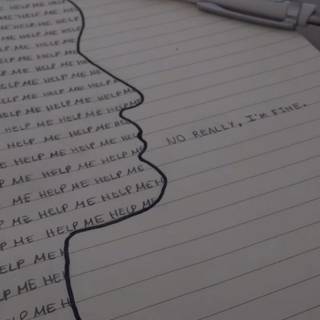 HELP ME HELP
ME HELP ME HELP
ME HELP ME HELP
ME HELP ME HEL
ME HELP ME HE
ME HELP ME HE
ME HELP ME HE
ME HELP ME HELP ME
ME HELP ME HELP ME
HELP ME HELP ME
HELP ME HELP ME HE
ME HELP ME HELP ME HE
NO REALLY, I'M FINE.
ME HELP ME HELP ME HE
ME HELP ME HELP ME
ME HELP ME HELP ME H
ME HELP ME HELP ME
ME HELP ME HELP ME
ELP ME H
ELP ME HE
LP ME H